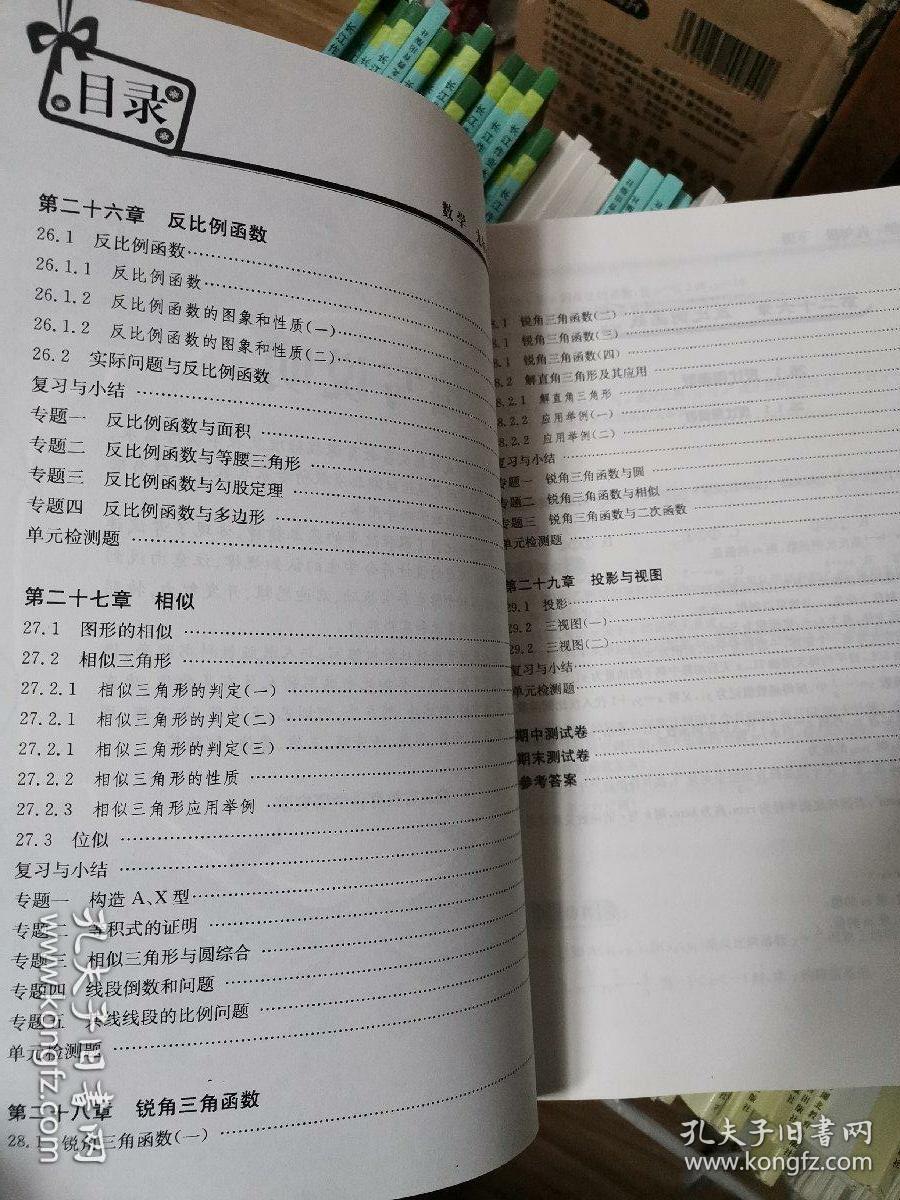 目录
数学
第二十六章 反比例函数
26.1 反比例函数
26.1.1 反比例函数
26.1.2 反比例函数的图象和性质(一)
26.1.2 反比例函数的图象和性质(二)
26.2 实际问题与反比例函数
复习与小结
专题一 反比例函数与面积
专题二 反比例函数与等腰三角形
专题三 反比例函数与勾股定理
专题四 反比例函数与多边形
单元检测题
第二十七章 相似
27.1 图形的相似
27.2 相似三角形
27.2.1 相似三角形的判定(一)
27.2.1 相似三角形的判定(二)
27.2.1 相似三角形的判定(三)
27.2.2 相似三角形的性质
27.2.3 相似三角形应用举例
27.3 位似
复习与小结
专题一 构造A、X型
专题二 等积式的证明
专题三 相似三角形与圆综合
专题四 线段倒数和问题
专题五 共线线段的比例问题
单元检测题
第二十八章 锐角三角函数
28.1 锐角三角函数(一)
8.1 锐角三角函数(二)
8.1 锐角三角函数(三)
8.1 锐角三角函数(四)
8.2 解直角三角形及其应用
8.2.1 解直角三角形
8.2.2 应用举例(一)
8.2.2 应用举例(二)
复习与小结
专题一 锐角三角函数与圆
专题二 锐角三角函数与相似
专题三 锐角三角函数与二次函数
单元检测题
第二十九章 投影与视图
29.1 投影
29.2 三视图(一)
29.2 三视图(二)
复习与小结
单元检测题
期中测试卷
期末测试卷
参考答案
孔夫子旧书网
www.kongfz.com
孔夫子旧书网
www.kongfz.com